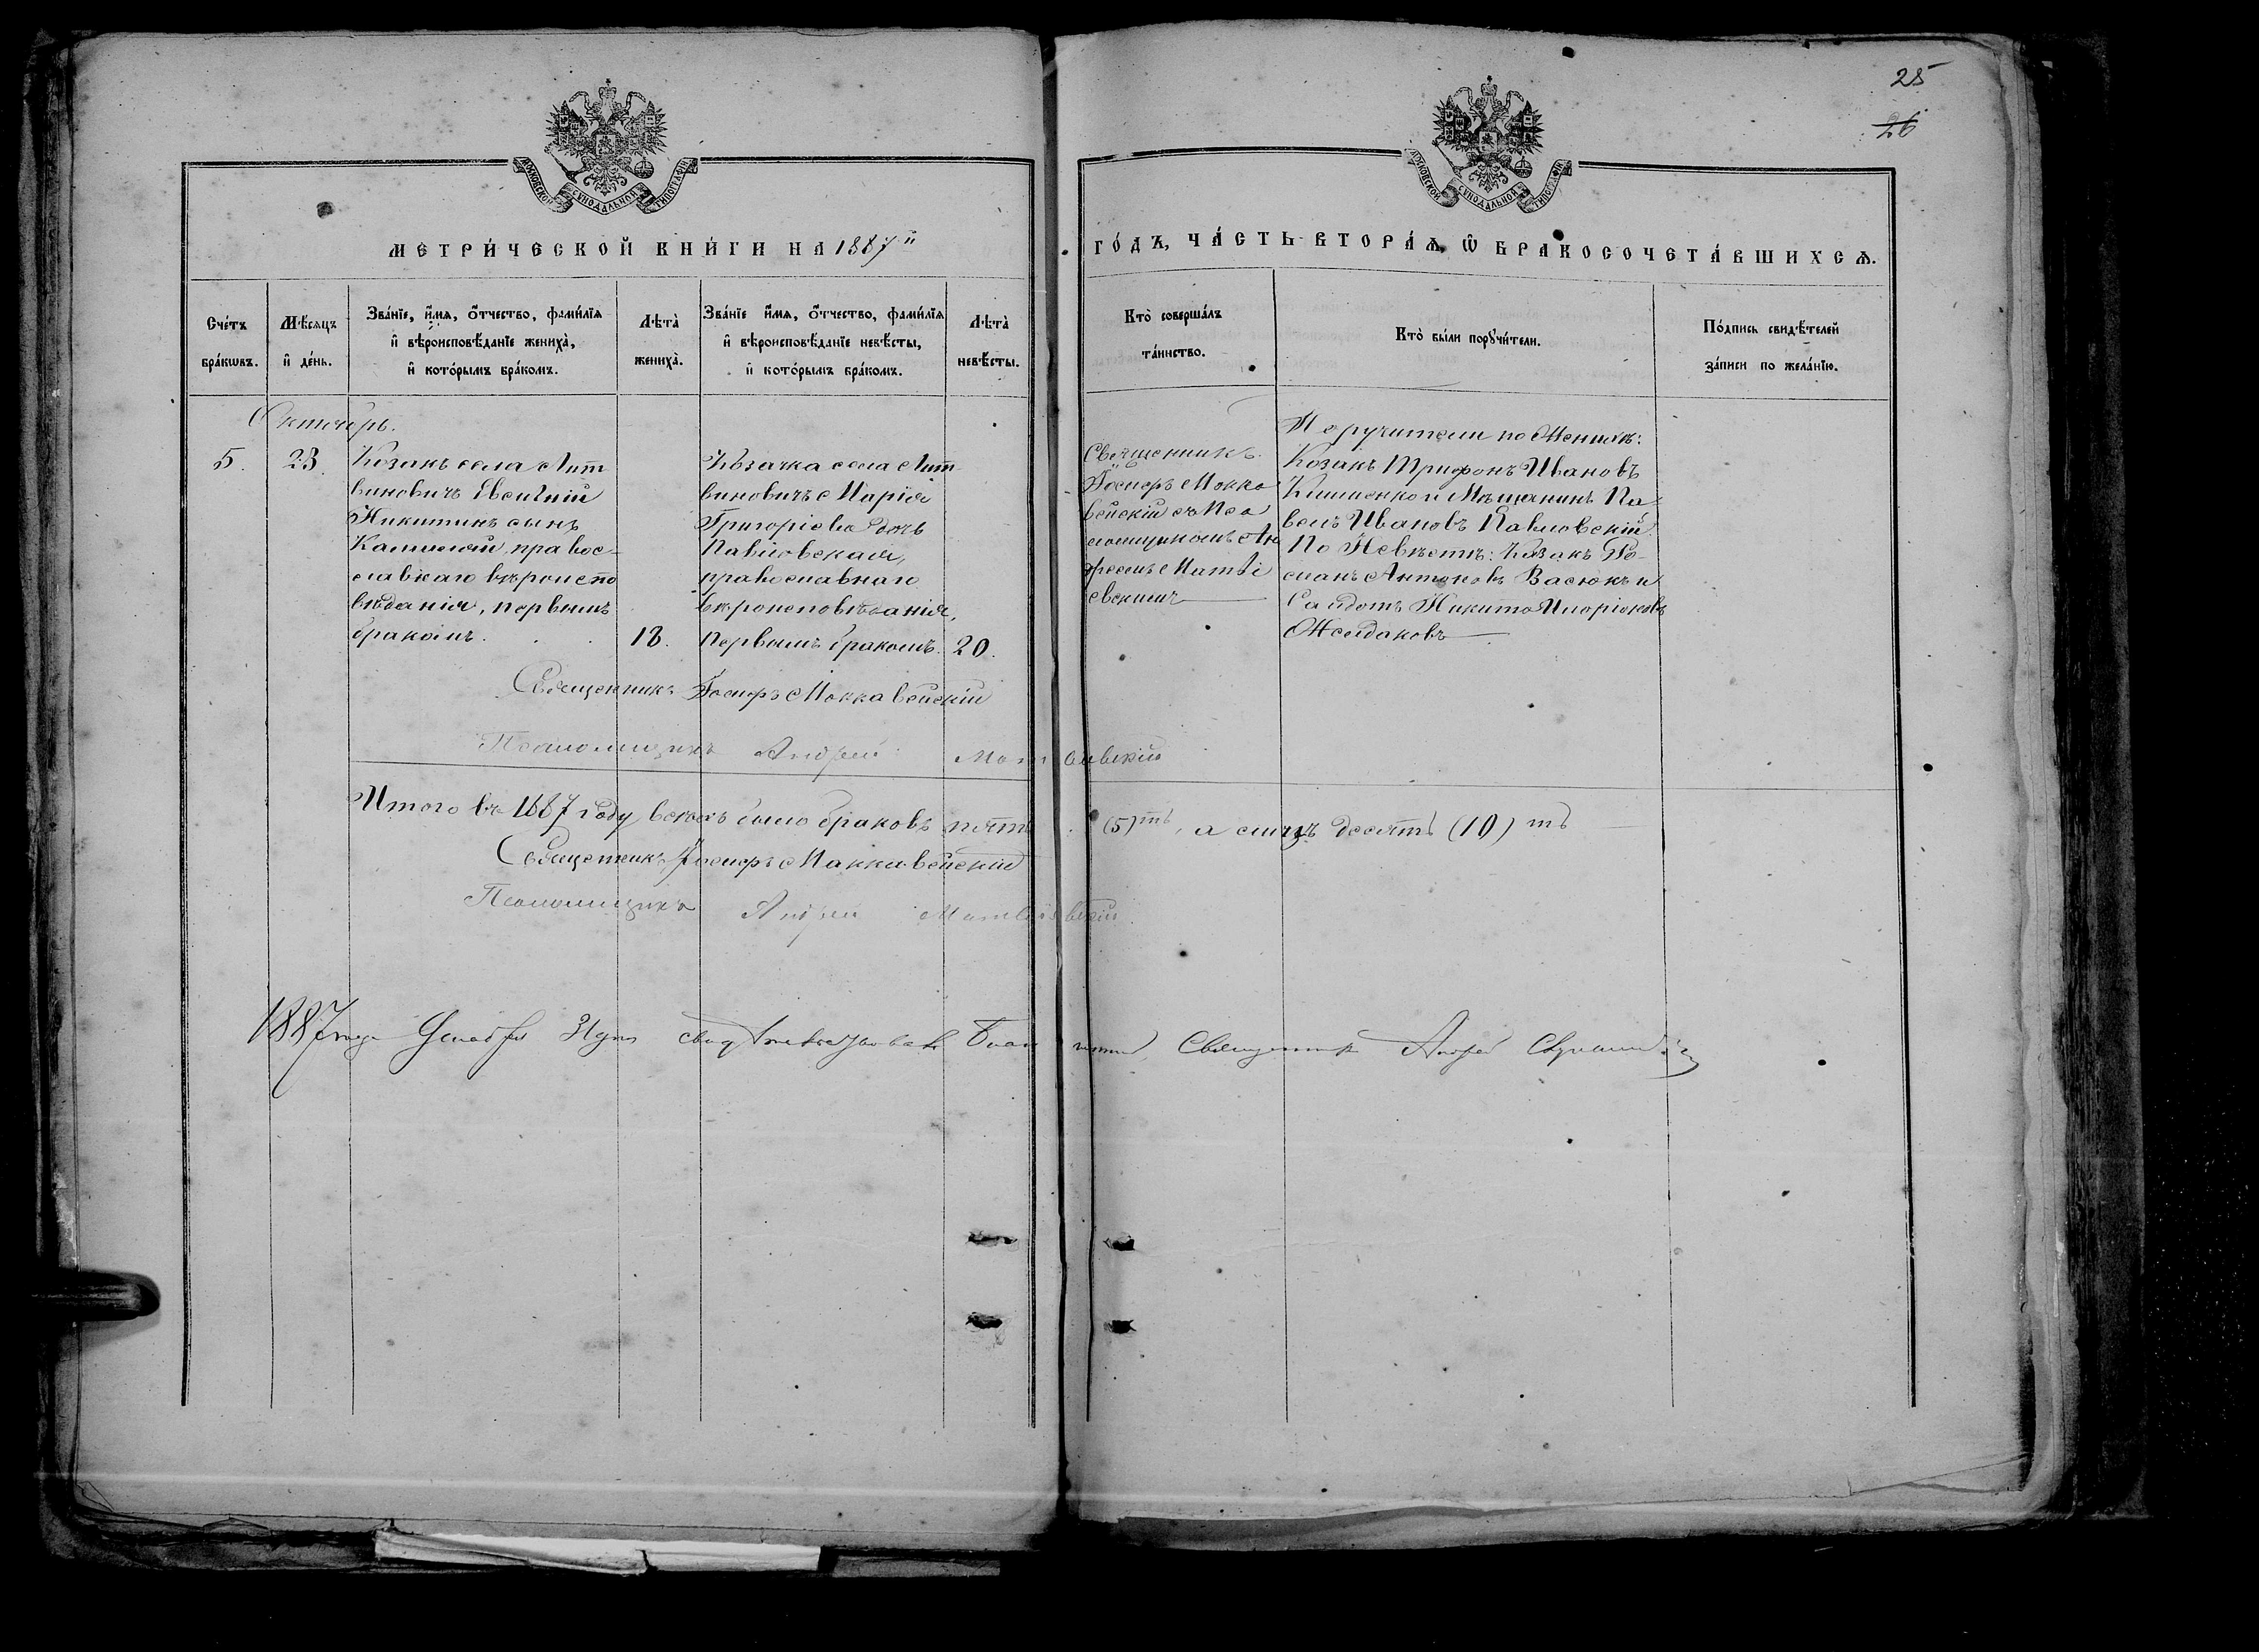 25
26
МОСКОВСКОЙ СѴНОДАЛЬНОЙ ТИПОГРАФІИ
МОСКОВСКОЙ СѴНОДАЛЬНОЙ ТИПОГРАФІИ
МЕТРИ́ЧЕСКОЙ КНИ́ГИ НА 1887й
ГО́ДЪ, ЧА́СТЬ ВТОРА́Ѧ, Ѡ҆ БРАКОСОЧЕТА́ВШИХСѦ.
Сче́тъ бра́кѡвъ.
Мѣ́сѧцъ и҆ де́нь.
Зва́нїе, и҆́мѧ, ѻ҆́тчество, фами́лїѧ
и҆ вѣроисповѣ́данїе жениха̀,
и҆ кото́рымъ бра́комъ.
Лѣта̀ жениха̀.
Зва́нїе и҆́мѧ, ѻ҆́тчество, фами́лїѧ
и҆ вѣроисповѣ́данїе невѣ́сты,
и҆ кото́рымъ бра́комъ.
Лѣта̀ невѣ́сты.
Кто̀ соверша́лъ та́инство.
Кто̀ бы́ли порꙋчи́тели.
По́дпись свидѣ́телей за́писи по жела́нїю.
Октябрь.
5. 23.
Козакъ села Лит
виновичъ Евгеній
Никитинъ сынъ
православнаго вѣроиспо
вѣданія, первымъ
бракомъ.
18.
Козачка села Лит
виновичъ Марія
Григоріева дочь
Павловская,
православнаго
вѣроисповѣданія,
первымъ бракомъ.
20.
Священникъ
Іосифъ Макка
вейскій съ Пса
ломщикомъ Ан
дреемъ Матвi
евскимъ
Поручители по Женихѣ:
Козакъ Трифонъ Ивановъ
и Мѣщанинъ Па-
велъ Ивановъ Павловскій.
По Невѣстѣ: Козакъ Ро-
манъ Антоновъ Васюкъ и
Солдатъ Никита Иларіоновъ
Желдаковъ
Священникъ Іосифъ Маккавейскій
Псаломщикъ Андрей Матвіевскій
Итого въ 1887 году всѣхъ было браковъ пять (5)ть, а лицъ десять (10)ть
Священникъ Іосифъ Маккавейскій
Псаломщикъ Андрей Матвіевскій
1887 года Декабря 31 дня свидѣтельствовалъ Благочинный, Священникъ Андрей